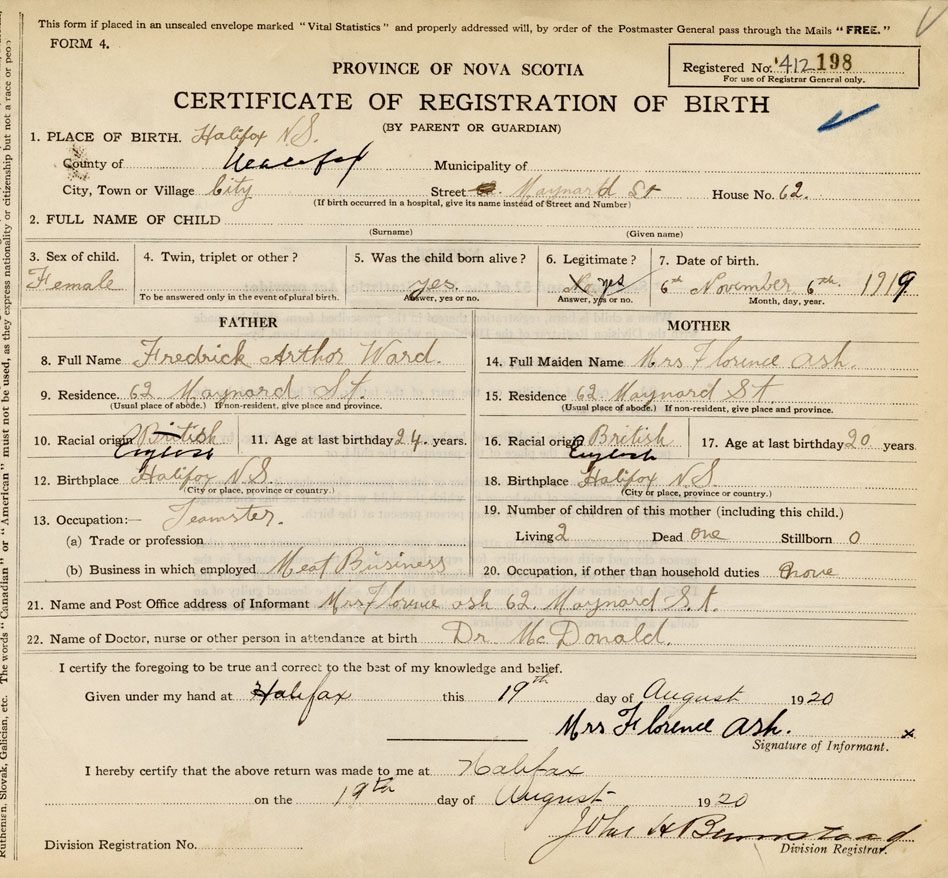 This form if placed in an unsealed envelope marked "Vital Statistics" and properly addressed will, by order of the Postmaster General pass through the Mails "FREE."
FORM 4.
Registered No. 412198
For use of Registrar General only.
PROVINCE OF NOVA SCOTIA
CERTIFICATE OF REGISTRATION OF BIRTH
(BY PARENT OR GUARDIAN)
1. PLACE OF BIRTH. Halifax N.S.
County of Halifax Municipality of
City, Town or Village City Street Maynard St House No. 62.
(If birth occurred in a hospital, give its name instead of Street and Number)
2. FULL NAME OF CHILD
(Surname) (Given name)
3. Sex of child. 4. Twin, triplet or other? 5. Was the child born alive? 6. Legitimate? 7. Date of birth.
Female yes. No yes 6th November 6th 1919
To be answered only in the event of plural birth. Answer, yes or no. Answer, yes or no. Month, day, year.
FATHER MOTHER
8. Full Name Fredrick Arthor Ward. 14. Full Maiden Name Mrs Florence Ash.
9. Residence 62 Maynard St. 15. Residence 62 Maynard St.
(Usual place of abode.) If non-resident, give place and province. (Usual place of abode.) If non-resident, give place and province.
10. Racial origin British 11. Age at last birthday 24. years. 16. Racial origin British 17. Age at last birthday 20 years.
English English
12. Birthplace Halifax N.S. 18. Birthplace Halifax N.S.
(City or place, province or country.) (City or place, province or country.)
13. Occupation:— Teamster. 19. Number of children of this mother (including this child.)
(a) Trade or profession Living 2 Dead one Stillborn 0
(b) Business in which employed Meat Business 20. Occupation, if other than household duties
21. Name and Post Office address of Informant Mrs Florence ash 62. Maynard St.
22. Name of Doctor, nurse or other person in attendance at birth Dr. McDonald.
I certify the foregoing to be true and correct to the best of my knowledge and belief.
Given under my hand at Halifax this 19th day of August 1920
Mrs Florence Ash. x
Signature of Informant.
I hereby certify that the above return was made to me at Halifax
on the 19th day of August 1920
John H
Division Registration No. Division Registrar.
Ruthenian, Slovak, Galician, etc. The words "Canadian" or "American" must not be used, as they express nationality or citizenship but not a race or